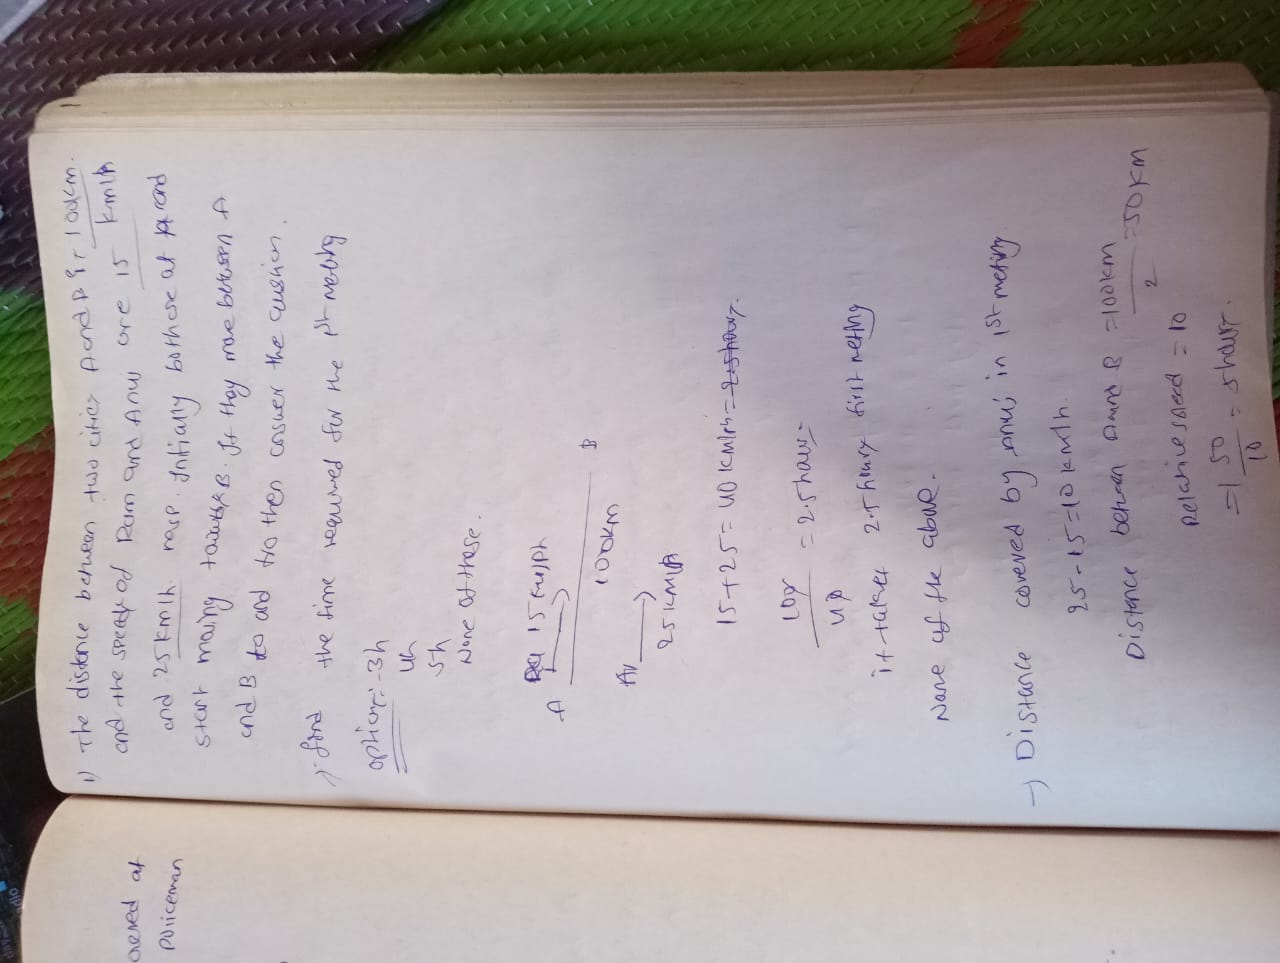 1) The distance between two cities A and B is 100km.
and the speed of Ram and Anu are 15 km/h
and 25km/h resp. Initially both are at A and
start moving towards B. If they move between A
and B to and fro then answer the question.
→ find the time required for the 1st meeting
option:- 3h
4h
5h
None of these.
A 15 km/h B
100km
Au
25 km/h
15+25 = 40 km/h = 2.5 hours.
100
40 = 2.5 hours
it takes 2.5 hours first meeting
None of the above.
→ Distance covered by Anu; in 1st meeting.
25-15=10 km/h.
Distance between A and B = 100km
2 = 50 KM
Relative speed = 10
= 50
10 = 5 hours.
ered at
policeman